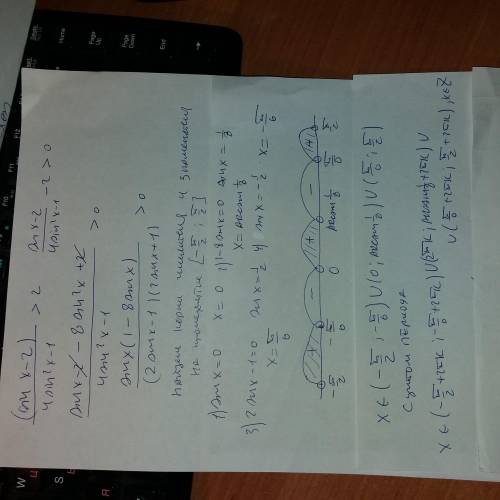 (sin x-2)/(4sin²x-1) > 2     (sin x-2)/(4sin²x-1) -2>0
(sin x-2 - 8sin²x+2)/(4sin²x-1) >0
sin x(1-8sin x)/((2sin x-1)(2sin x+1)) >0
Найдем корни числителя и знаменателя
на промежутке [-π/2; π/2]
1) sin x=0   x=0   2) 1-8sin x=0   sin x=1/8
x=arcsin 1/8
3) 2sin x-1=0   sin x=1/2   4) sin x=-1/2
x=π/6   x=-π/6
-π/2   -π/6   0   arcsin 1/8   π/6   π/2
x∈(-π/2; -π/6)∪(0; arcsin 1/8)∪(π/6; π/2)
С учетом периода
x∈(-π/2+2πk; -π/6+2πk)∪(2πk; arcsin 1/8+2πk)∪
∪(π/6+2πk; π/2+2πk), k∈Z
Home
Page Up
Page Down
End